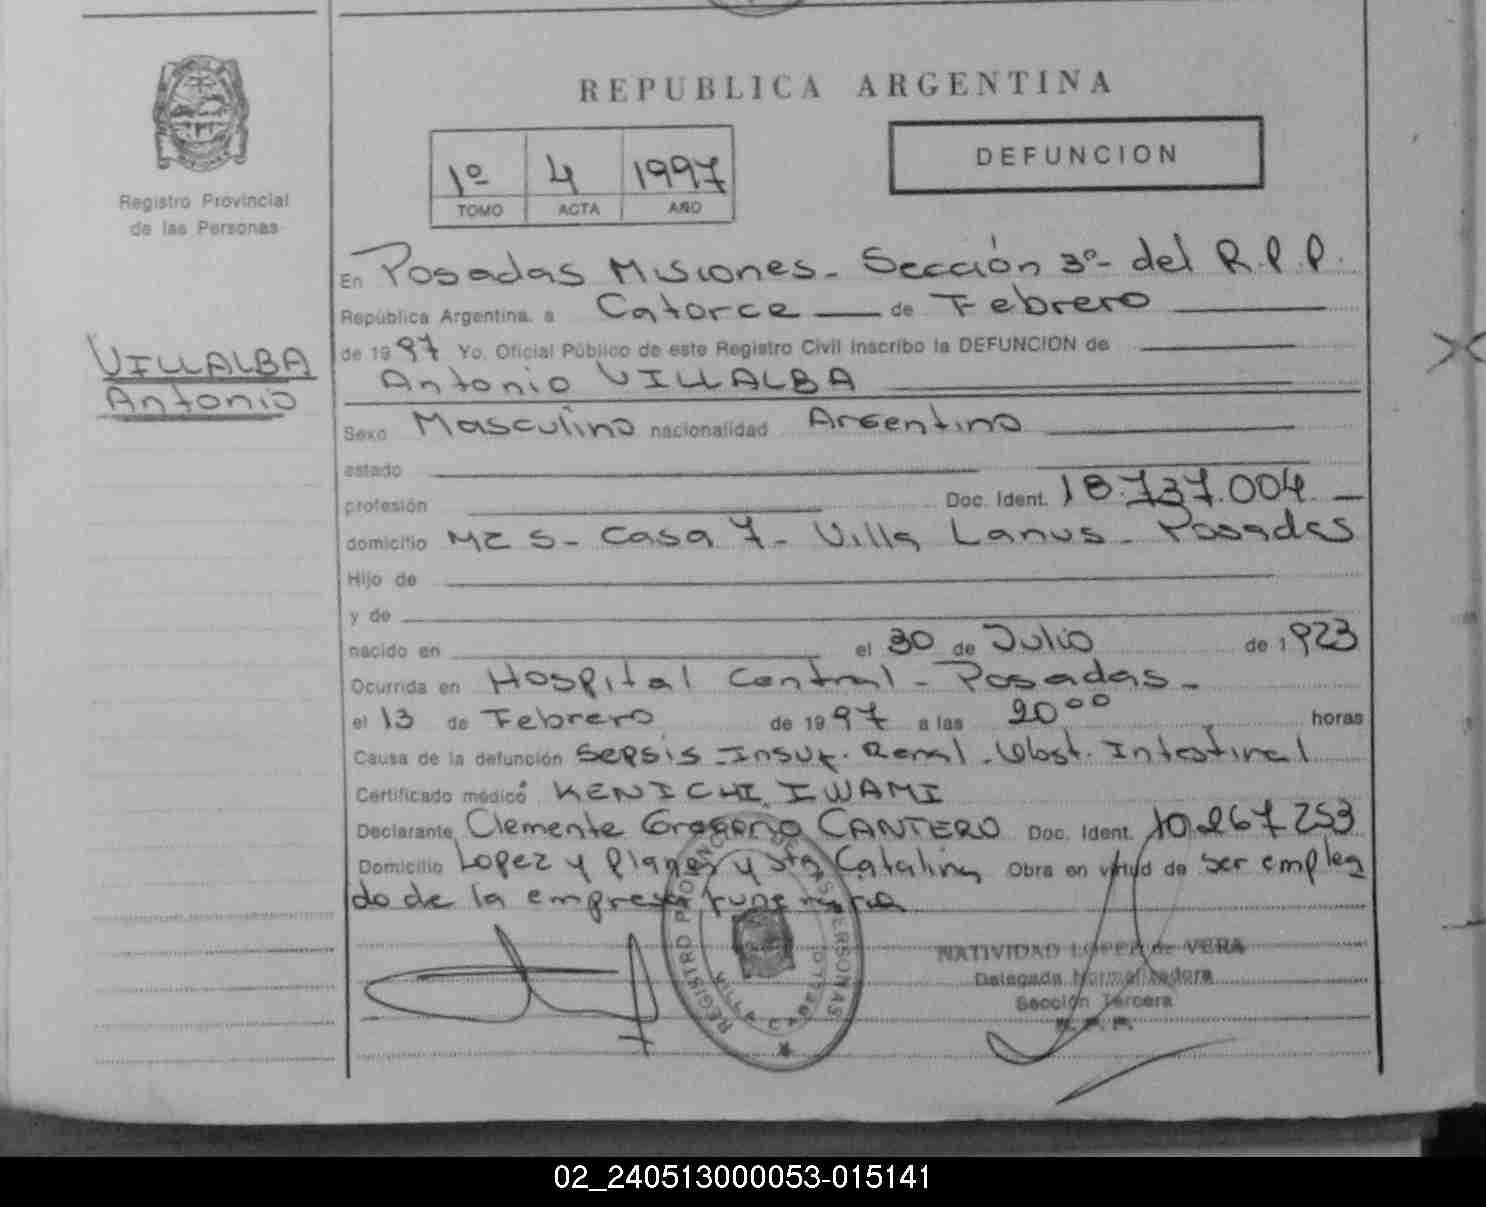 REPUBLICA ARGENTINA
Registro Provincial
de las Personas
1º 4 1997
TOMO ACTA AÑO
DEFUNCION
VILLALBA
Antonio
En Posadas Misiones - Sección 3º - del R.P.P.
República Argentina, a Catorce de Febrero
de 1997 Yo, Oficial Público de este Registro Civil inscribo la DEFUNCION de
Antonio VILLALBA
Sexo Masculino nacionalidad Argentino
estado
profesión Doc. Ident. 18.737.004
domicilio Mz S - Casa 7 - Villa Lanus - Posadas
Hijo de
y de
nacido en el 30 de Julio de 1923
Ocurrida en Hospital Central - Posadas -
el 13 de Febrero de 1997 a las 20 00 horas
Causa de la defunción Sepsis - Insuf. Renal - Obst. Intestinal
Certificado médico KENICHI IWAMI
Declarante Clemente CANTERO Doc. Ident. 10.267.253
Domicilio Lopez y Planes y Sta Catalina Obra en virtud de ser emplea
do de la empresa funeraria
NATIVIDAD LOPEZ de VERA
Delegada Normalizadora
Sección Tercera
R. P. P.
REGISTRO PERSONAS
VILLA CABELLO
02_240513000053-015141